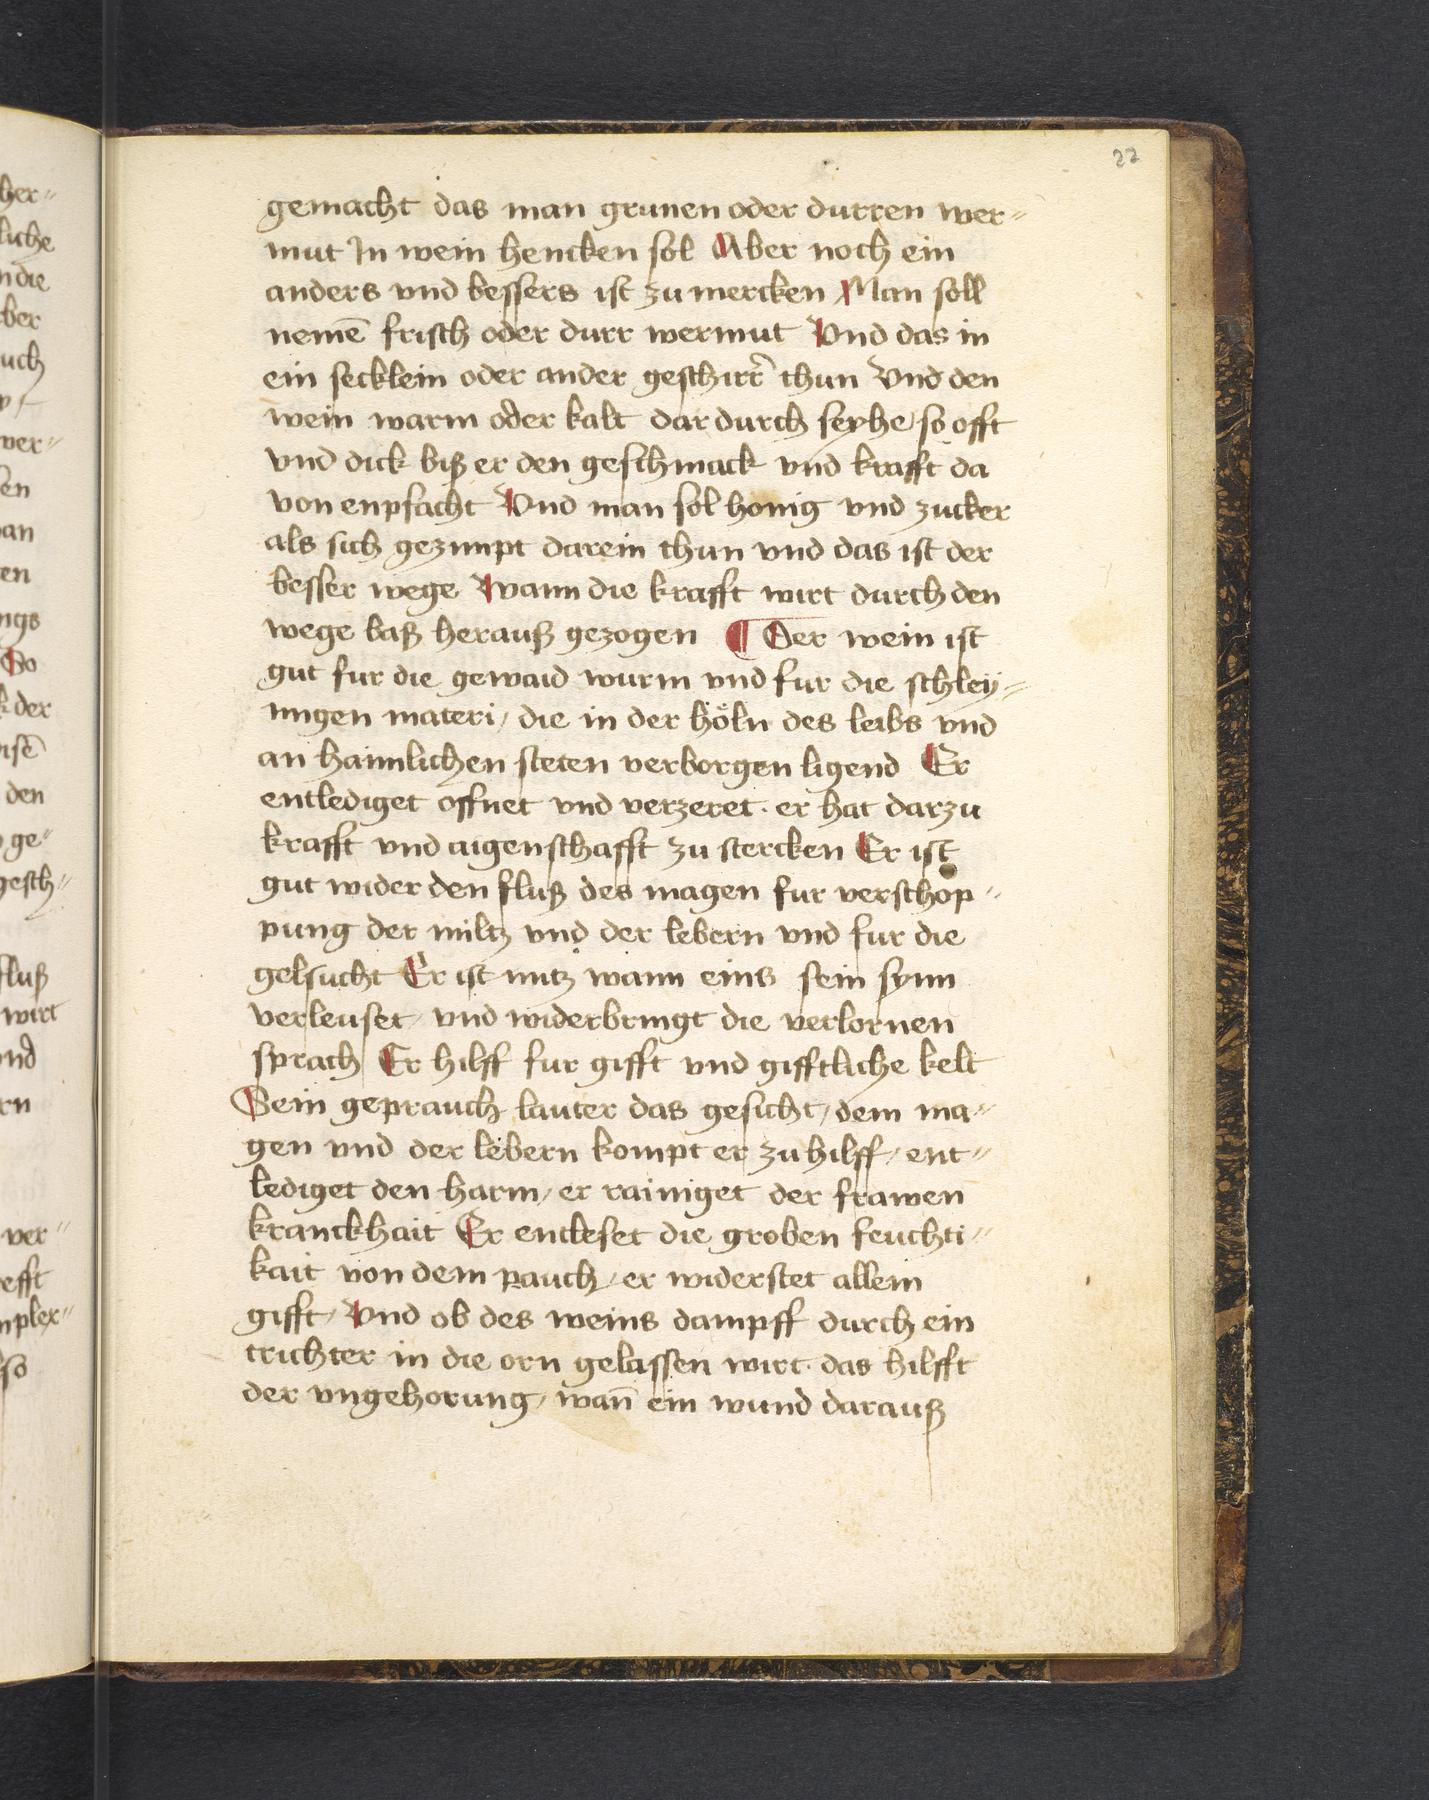 22
gemacht das man grunen oder durren wer=
mut In wein hencken sol Aber noch ein
anders vnd bessers ist zu mercken Man soll
nemē frisch oder durr wermut Vnd das in
ein secklein oder ander geschirr̄ thun Vnd den
wein warm oder kalt dar durch seyhe/ so offt
vnd dick biß er den geschmack vnd krafft da
von enpfacht Vnd man sol honig vnd zucker
als sich gezimpt darein thun vnd das ist der
besser wege Wann die krafft wirt durch den
wege baß herauß gezogen ¶ Der wein ist
gut fur die gewaid wurm vnd fur die schley=
migen materi/ die in der höln des leibs vnd
an haimlichen steten verborgen ligend Er
entlediget offnet vnd verzeret · er hat darzu
krafft vnd aigenschafft zu stercken Er ist
gut wider den fluß des magen fur verschop=
pung der miltz vnd der lebern vnd fur die
gelsucht Er ist nutz wann eins sein synn
verleuset/ vnd widerbringt die verlornen
sprach Er hilff fur gifft vnd gifftliche kelt
Sein geprauch lauter das gesicht/ dem ma=
gen vnd der lebern kompt er zu hilff/ ent=
lediget den harm/ er rainiget der frawen
kranckhait Er entleset die groben feuchti=
kait von dem pauch/ er widerstet allem
gifft/ Vnd ob des weins dampff durch ein
trichter in die orn gelassen wirt · das hilfft
der vngehorung/ wan̄ ein wund darauß